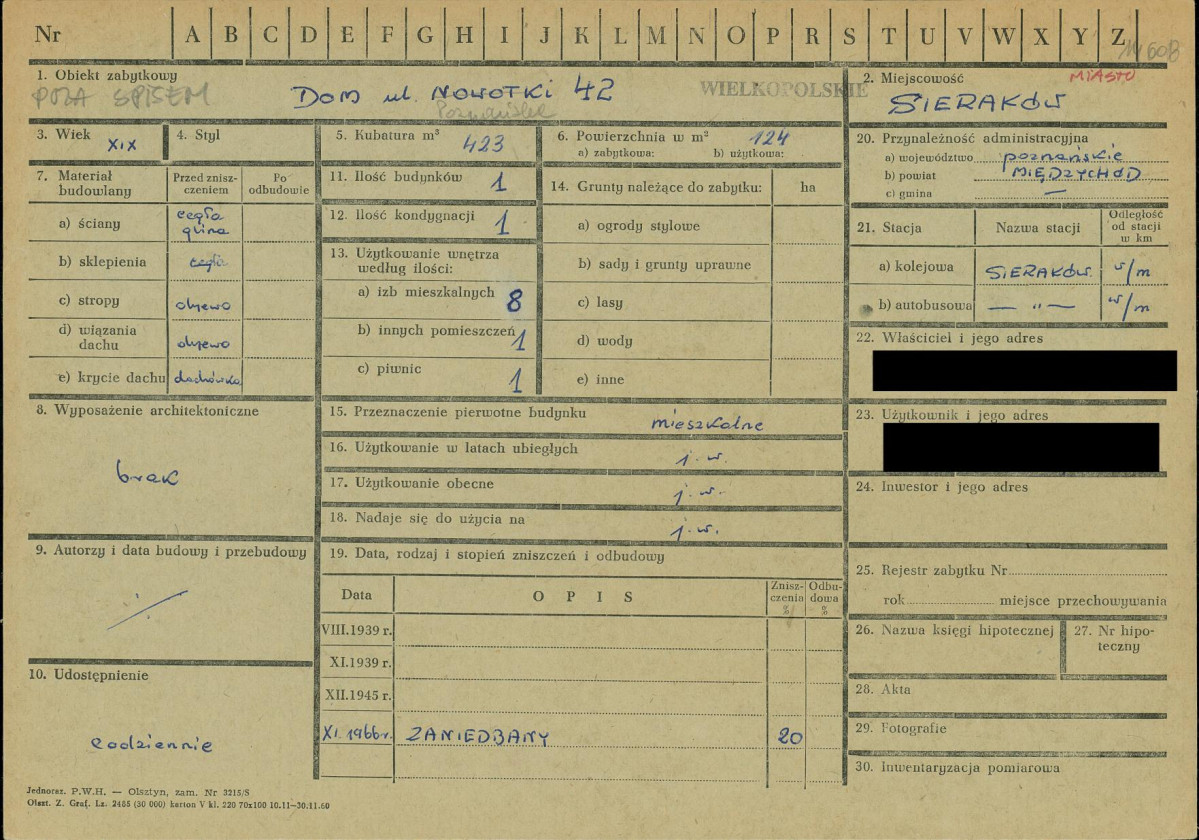 Nr A B C D E F G H I J K L M N O P R S T U V W X Y Z
1. Obiekt zabytkowy
POZA SPISEM
DOM ul. NOWOTKI 42
Poznańska
WIELKOPOLSKIE
2. Miejscowość
MIASTO
SIERAKÓW
3. Wiek
XIX
4. Styl
5. Kubatura m³
423
6. Powierzchnia w m²
124
a) zabytkowa: b) użytkowa:
20. Przynależność administracyjna
a) województwo poznańskie
b) powiat MIĘDZYCHÓD
c) gmina —
7. Materiał budowlany
Przed zniszczeniem
Po odbudowie
a) ściany
cegła
glina
b) sklepienia
cegła
c) stropy
drzewo
d) wiązania dachu
drzewo
e) krycie dachu
dachówka
11. Ilość budynków 1
12. Ilość kondygnacji 1
13. Użytkowanie wnętrza
według ilości:
a) izb mieszkalnych 8
b) innych pomieszczeń 1
c) piwnic 1
14. Grunty należące do zabytku: ha
a) ogrody stylowe
b) sady i grunty uprawne
c) lasy
d) wody
e) inne
21. Stacja
Nazwa stacji
Odległość
od stacji
w km
a) kolejowa SIERAKÓW w/m
b) autobusowa — „ — w/m
22. Właściciel i jego adres
8. Wyposażenie architektoniczne
brak
15. Przeznaczenie pierwotne budynku
mieszkalne
16. Użytkowanie w latach ubiegłych
j. w.
17. Użytkowanie obecne
j. w.
18. Nadaje się do użycia na
j. w.
23. Użytkownik i jego adres
24. Inwestor i jego adres
9. Autorzy i data budowy i przebudowy
10. Udostępnienie
codziennie
19. Data, rodzaj i stopień zniszczeń i odbudowy
Data
OPIS
Znisz-
czenia
%
Odbu-
dowa
%
VIII.1939 r.
XI.1939 r.
XII.1945 r.
XI. 1966 r. ZANIEDBANY 20
25. Rejestr zabytku Nr
rok miejsce przechowywania
26. Nazwa księgi hipotecznej
27. Nr hipo-
teczny
28. Akta
29. Fotografie
30. Inwentaryzacja pomiarowa
Jednoraz. P.W.H. — Olsztyn, zam. Nr 3215/S
Olszt. Z. Graf. Lz. 2465 (30 000) karton V kl. 220 70x100 10.11—30.11.60